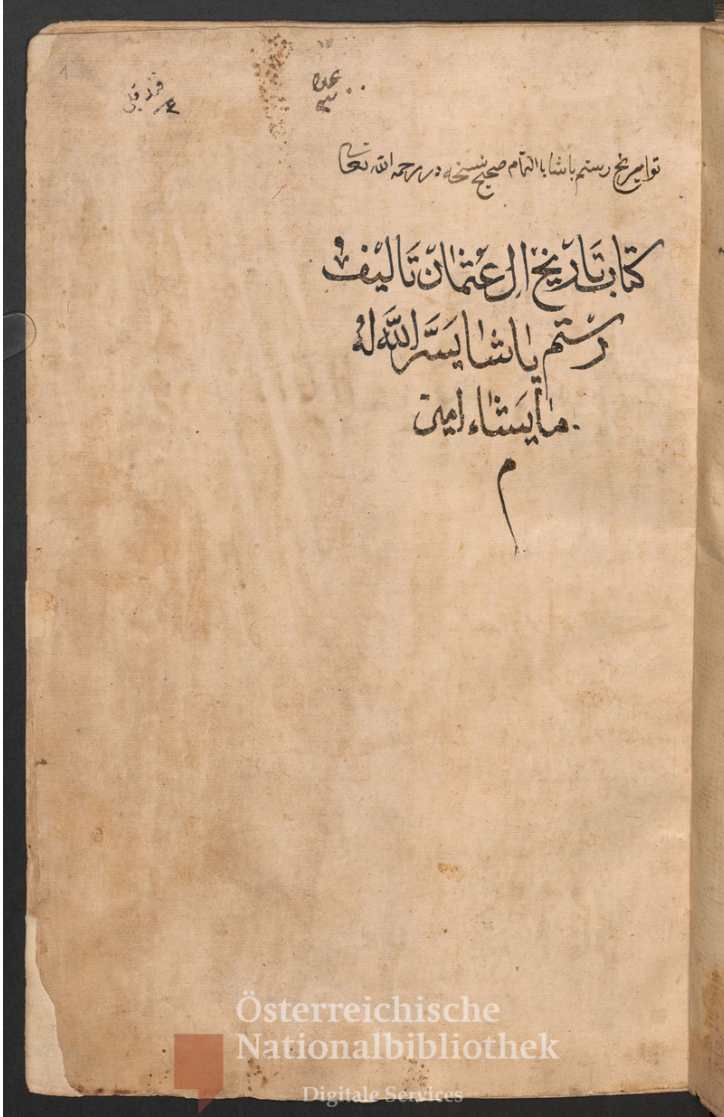 1
تواريخ رستم باشا بالتمام صحيح نسخه در رحمه الله تعالى
كتاب تَاريخ ال عثمان تَاليف
رستم پاشا يَسَّر الله له
مايَشاء امين
م
Österreichische
Nationalbibliothek
Digitale Services